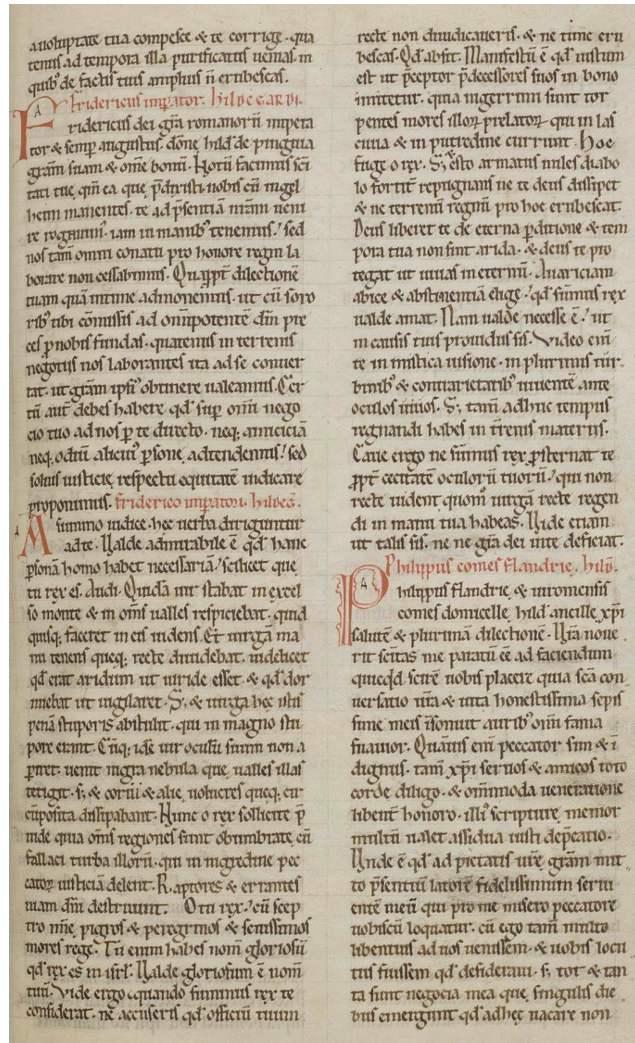 a uoluptate tua compesce & te corrige. qua
tenus ad tempora illa purificatus uenias. in
quib; de factis tuis amplius n̄ erubescas.
Fridericus imp̄ator. HILDEGARDI.
Fridericus dei gr̄a romanorū impera
tor & semp̄ augustus. dōne hild' de pinguia
grām suam & om̄e bonū. Notū facimus sc̄i
tati tue, qm̄ ea que p̄dixisti nobis cū ingel
heim manentes. te ad p̄sentiā nr̄am ueni
re rogauim'. iam in manib' tenemus. sed
nos tam̄ omni conatu pro honore regni la
borare non cessabimus. Quap̄pt̄ dilectionē
tuam quā intime admonemus. ut cū soro
rib' tibi cōmissis ad om̄ipotentē dm̄ pre
ces p̄ nobis fundas. quatenus in terrenis
negotiis nos laborantes ita ad se conuer
tat. ut grām ipsi' obtinere ualeamus. Cer
tū aut̄ debes habere qd' sup̄ om̄i nego
cio tuo ad nos p̄ te directo. neq; amiciciā
neq; odiū alicui' p̄sone attendentes. sed
solius iusticie respectu equitatē iudicare
proponimus. Friderico imp̄atori. hildeḡ.
A summo iudice hec uerba diriguntur
ad te. Valde admirabile ē qd' hanc
p̄sonā homo habet necessariā. scilicet que
tu rex es. Audi. Quidā uir stabat in excel
so monte & in om̄s ualles respiciebat. quid
quisq; faceret in eis uidens. Et uirgā ma
nu tenens queq; recte diuidebat. uidelicet
qd' erat aridum ut uiride esset. & qd' dor
miebat ut uigilaret. S; & uirga hec istis
penā stuporis abstulit. qui in magno stu
pore erant. Cūq; ide uir oculū suum non a
p̄iret. uenit nigra nebula que ualles illas
tetigit. s; & corui & alie uolucres queq; cir
cūposita dissipabant. Nunc o rex sollicite p̄
uide quia om̄s regiones sunt obumbrate cū
fallaci turba illorū. qui in nigredine pec
catoꝝ iusticiā delent. Raptores & errantes
uiam dn̄i destruunt. O tu rex cū scep
tro mīe pigros & peregrinos & seuissimos
mores rege. Tu enim habes nom̄ gloriosū
qd' rex es in isr̄l. Valde gloriosum ē nom̄
tuū. Vide ergo quando summus rex te
considerat. ne accuseris qd' officiū tuum
recte non diiudicaueris. & ne tunc eru
bescas. Qd' absit. Manifestū ē qd' iustum
est ut p̄ceptor p̄decessores suos in bono
imitetur. quia nigerrimi sunt tor
pentes mores illoꝝ prelatoꝝ. qui in las
ciuia & in putredine currunt. Hoc
fuge o rex. S; esto armatus miles diabo
lo fortit̄ repugnans ne te deus dissipet
& ne terrenū regnū pro hoc erubescat.
Deus liberet te de eterna p̄ditione & tem
pora tua non sint arida. & deus te pro
tegat ut uiuas in eternū. Auariciam
abice & abstinentiā elige. qd' summus rex
ualde amat. Nam ualde necesse ē. ut
in causis tuis prouidus sis. Video eni
te in mistica uisione. in plurimis tur
binib' & contrarietatib' uiuentē ante
oculos uiuos. S; tam̄ adhuc tempus
regnandi habes in t̄renis materiis.
Caue ergo ne summus rex p̄sternat te
p̄pt̄ cecitatē oculorū tuorū. qui non
recte uident quom' uirgā recte regen
di in manu tua habeas. Vide etiam
ut talis sis. ne ne gr̄a dei in te deficiat.
Philippus comes flandrie. hild'.
Philippus flandrie & uiromensis
comes domicelle hild' ancille xp̄i
salutē & plurimā dilectionē. Vr̄a noue
rit sc̄itas me paratū ēe ad faciendum
quicqd' scirē nobis placere quia sc̄a con
uersatio ur̄a & uita honestissima sepis
sime meis īsonuit aurib' om̄i fama
suauior. Quāuis eni peccator sim & ī
dignus. tam̄ xp̄i seruos & amicos toto
corde diligo. & om̄imoda ueneratione
libent̄ honoro. illi' scripture memor
multū ualet assidua iusti dep̄catio.
Vnde ē qd' ad pietatis ur̄e grām mit
to p̄sentiū latorē fidelissimum serui
entē meū qui pro me misero peccatore
uobiscū loquatur. cū ego tam̄ multo
libentius ad uos uenissem. & uobis locu
tus fuissem qd' desideraui. s; tot & tan
ta sunt negocia mea que singulis die
bus emergunt qd' adhęc uacare non